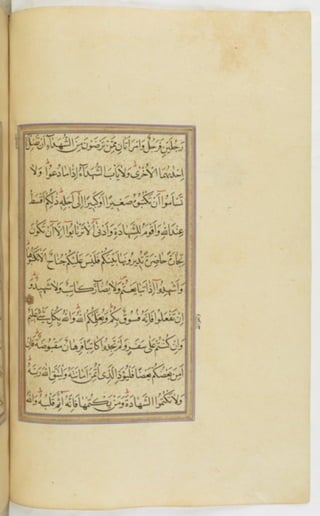 رجلين فرجل وامرأتان ممن ترضون من الشهداء أن تضل
إحديهما الأخرى ولا يأب الشهداء إذا ما دعوا ولا
تسأموا أن تكتبوه صغيرا أو كبيرا إلى أجله ذلكم أقسط
عند الله وأقوم للشهادة وأدنى ألا ترتابوا إلا أن تكون
تجارة حاضرة تديرونها بينكم فليس عليكم جناح ألا تكتبوها
وأشهدوا إذا تبايعتم ولا يضار كاتب ولا شهيد و
إن تفعلوا فإنه فسوق بكم ويعلمكم الله والله بكل شيء عليم
وإن كنتم على سفر ولم تجدوا كاتبا فرهان مقبوضة فإن
أمن بعضكم بعضا فليؤد الذي اؤتمن أمانته وليتق الله ربه
ولا تكتموا الشهادة ومن يكتمها فإنه آثم قلبه والله